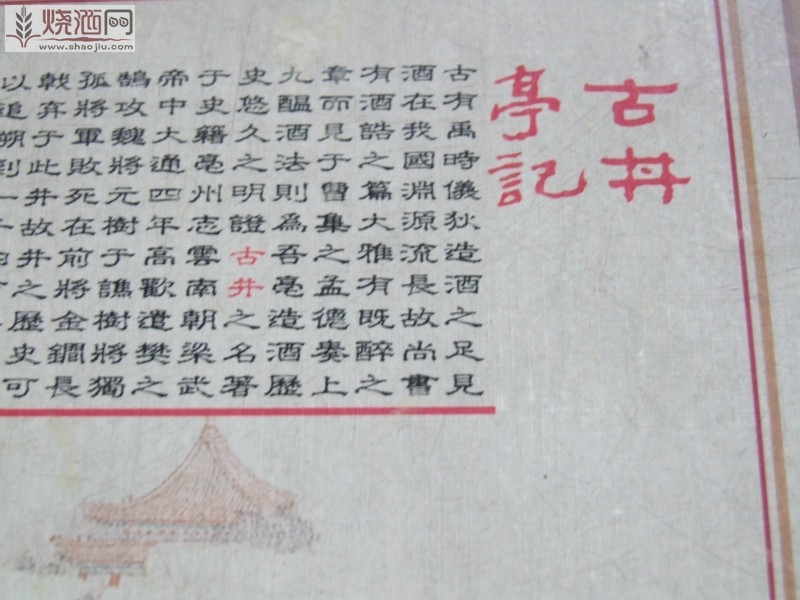 烧酒网
www.shaojiu.com
古井
亭記
古有禹時儀狄造酒之足見
酒在我國淵源流長故尚書
有酒誥之篇大雅有既醉之
章而見于曹集之孟德奏上
九醞酒法則為吾亳造酒歷
史悠久之明證古井之名著
于史籍亳州志雲南朝梁武
帝中大通四年高歡遣樊之
鵠攻魏將元樹于譙樹將獨
孤將軍敗死在前將金鐧長
戟弃于此井故井之歷史可
以追朔到一千